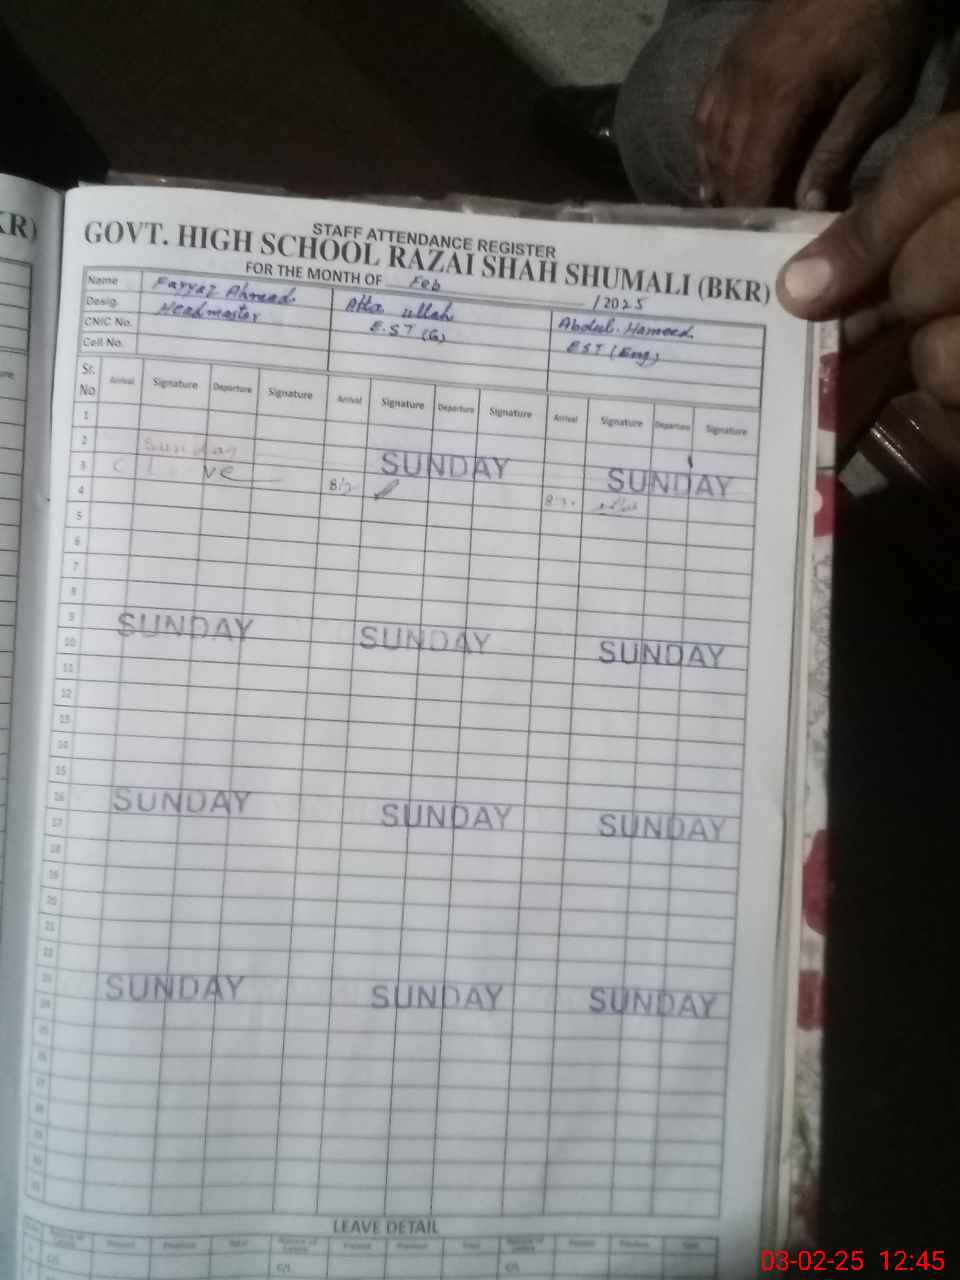 KR)
STAFF ATTENDANCE REGISTER
GOVT. HIGH SCHOOL RAZAI SHAH SHUMALI (BKR)
FOR THE MONTH OF Feb /2025
Name Fayyaz Ahmad Atta ullah Abdul Hameed
Desig. Headmaster E.ST (G) EST (Eng)
CNIC No.
Cell No.
Sr. No Arrival Signature Departure Signature Arrival Signature Departure Signature Arrival Signature Departure Signature
1
2 Sunday SUNDAY SUNDAY
3 C L ve
4
5
6
7
8
9 SUNDAY SUNDAY SUNDAY
10
11
12
13
14
15
16 SUNDAY SUNDAY SUNDAY
17
18
19
20
21
22
23 SUNDAY SUNDAY SUNDAY
24
25
26
27
28
LEAVE DETAIL
03-02-25 12:45